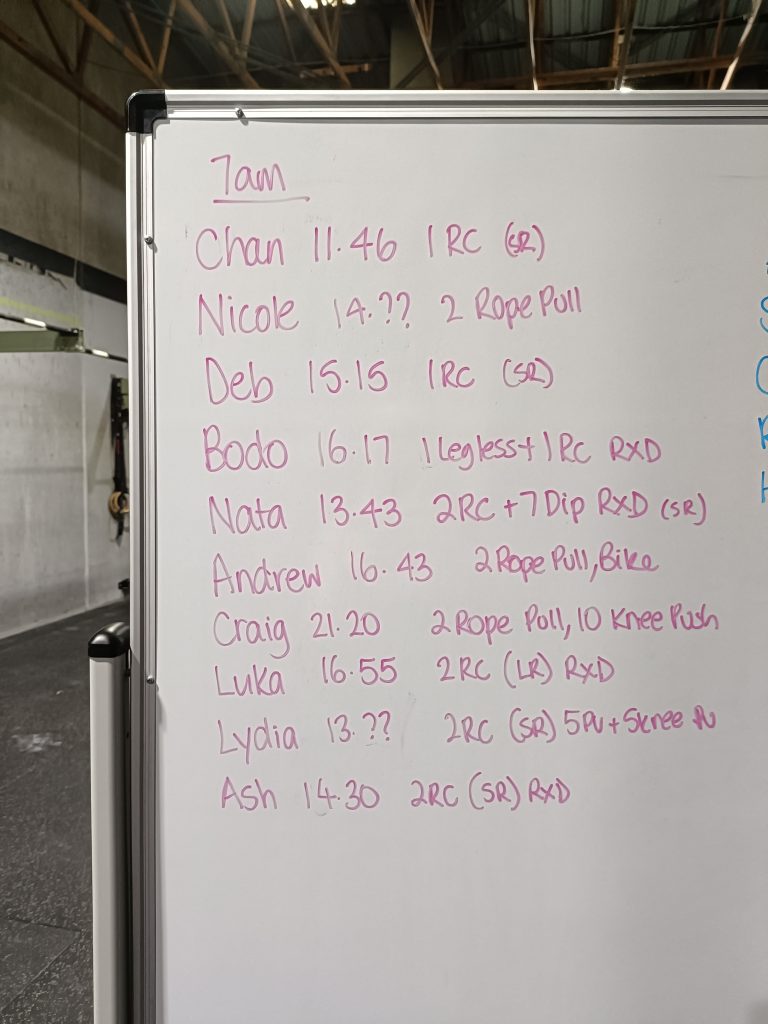 7am
Chan 11.46 1 RC (SR)
Nicole 14.?? 2 Rope Pull
Deb 15.15 1RC (SR)
Bodo 16.17 1 Legless + 1 RC RXD
Nata 13.43 2RC + 7 Dip RXD (SR)
Andrew 16.43 2 Rope Pull, Bike
Craig 21.20 2 Rope Pull, 10 Knee Push
Luka 16.55 2RC (LR) RXD
Lydia 13.?? 2RC (SR) 5PU + 5knee PU
Ash 14.30 2RC (SR) RXD